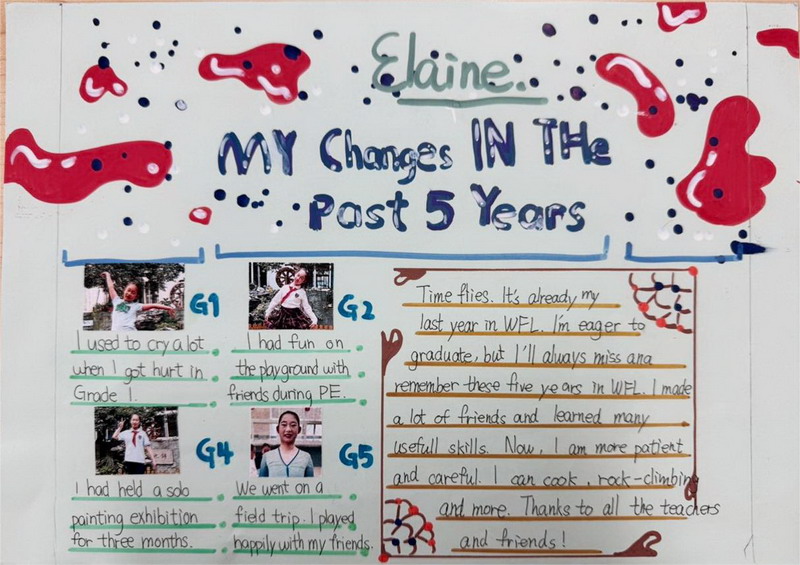 Elaine.
MY Changes IN THe
Past 5 Years
G1
I used to cry a lot
when I got hurt in
Grade 1.
G2
I had fun on
the playground with
friends during PE.
G4
I had held a solo
painting exhibition
for three months.
G5
We went on a
field trip. I played
happily with my friends.
Time flies. It's already my
last year in WFL. I'm eager to
graduate, but I'll always miss and
remember these five years in WFL. I made
a lot of friends and learned many
usefull skills. Now, I am more patient
and careful. I can cook, rock-climbing
and more. Thanks to all the teachers
and friends!